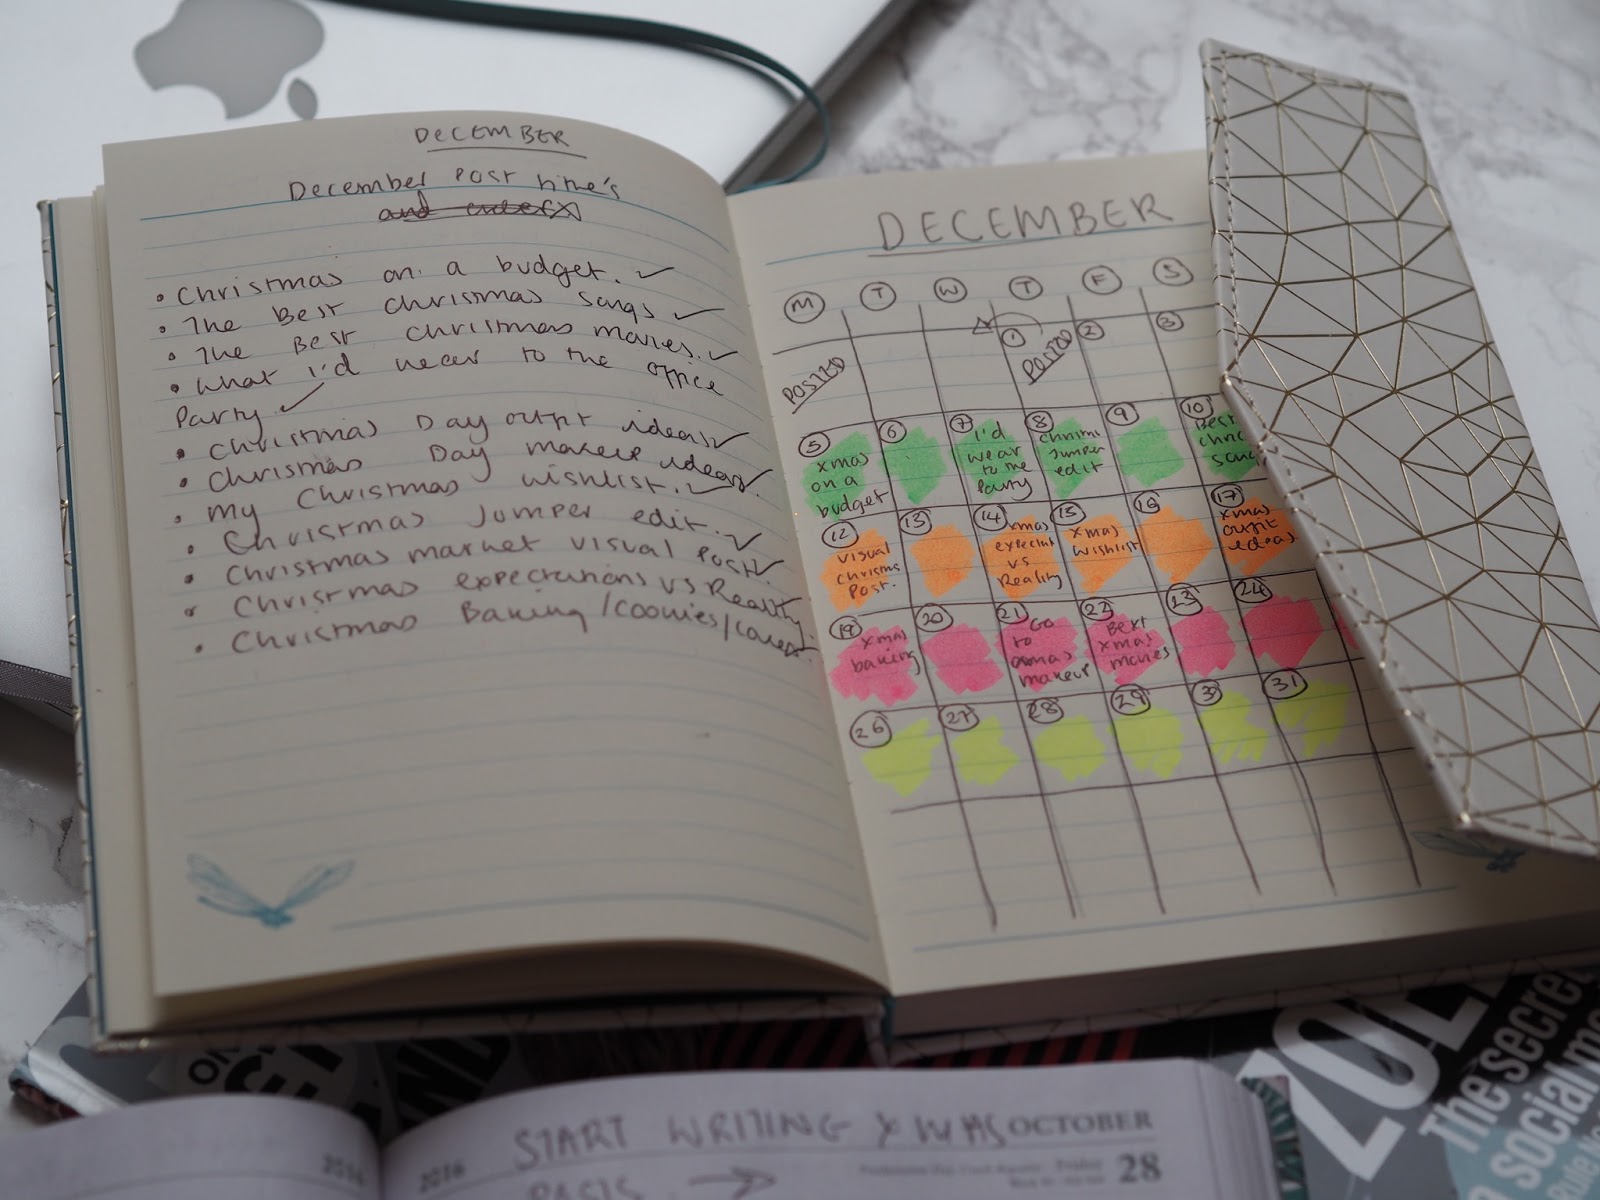 DECEMBER
December Post title's
• Christmas on a budget. ✓
• The Best Christmas Songs ✓
• The Best Christmas movies. ✓
• What I'd wear to the office
Party ✓
• Christmas Day outfit ideas ✓
• Christmas Day makeup ideas ✓
• My Christmas wishlist. ✓
• Christmas Jumper edit. ✓
• Christmas market visual Post. ✓
• Christmas expectations vs Reality
• Christmas Baking/cookies/cakes
DECEMBER
M T W T F S
1 2 3
POSTED
POSTED
5 6 7 8 9 10
xmas on a budget
I'd wear to the Party
Christmas Jumper edit
Best
12 13 14 15 16 17
Visual Christmas Post.
xmas vs Reality
xmas wishlist
xmas outfit ideas
19 20 21 22 23 24
xmas baking
Go to xmas makeup
Best xmas movies
26 27 28 29 30 31
START WRITING
OCTOBER
2016
2016
Friday
28
The secret
social